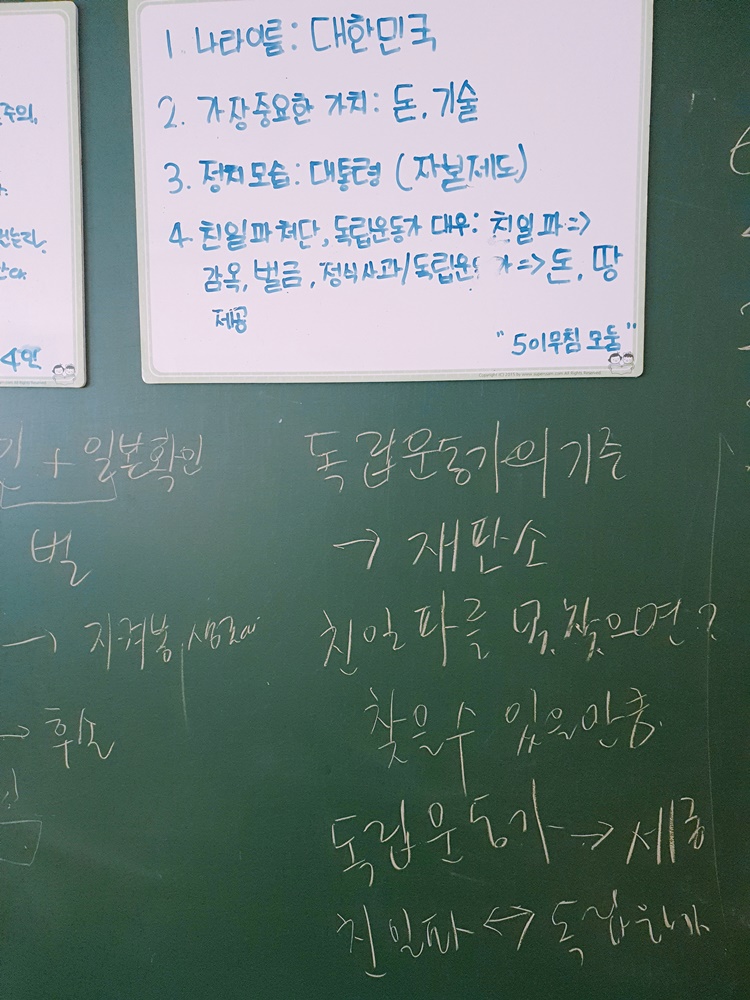 1. 나라이름: 대한민국
2. 가장중요한 가치: 돈, 기술
3. 정치모습: 대통령 (자본제도)
4. 친일파처단, 독립운동가 대우: 친일파=>
감옥, 벌금, 정식사과/독립운 가=>돈, 땅
제공
"5이무침 모둠"
주의,
4인
+ 일본확인
벌
→ 지켜봄,
→ 후손
독립운동가의 기준
→ 재판소
친일파를 못찾으면?
찾을수 있을만큼.
독립운동가 → 세금
친일파 <->